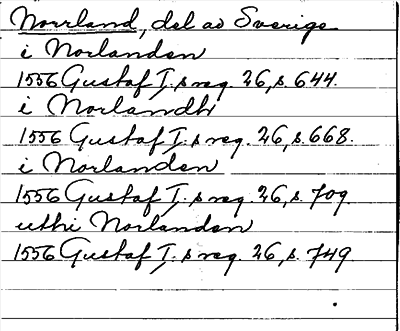 Norrland, del av Sverige
i Norlanden
1556 Gustaf I.s reg. 26, s. 644.
i Norlandh
1556 Gustaf I.s reg. 26, s. 668.
i Norlanden
1556 Gustaf I.s reg. 26, s. 709
uthi Norlanden
1556 Gustaf I.s reg. 26, s. 749